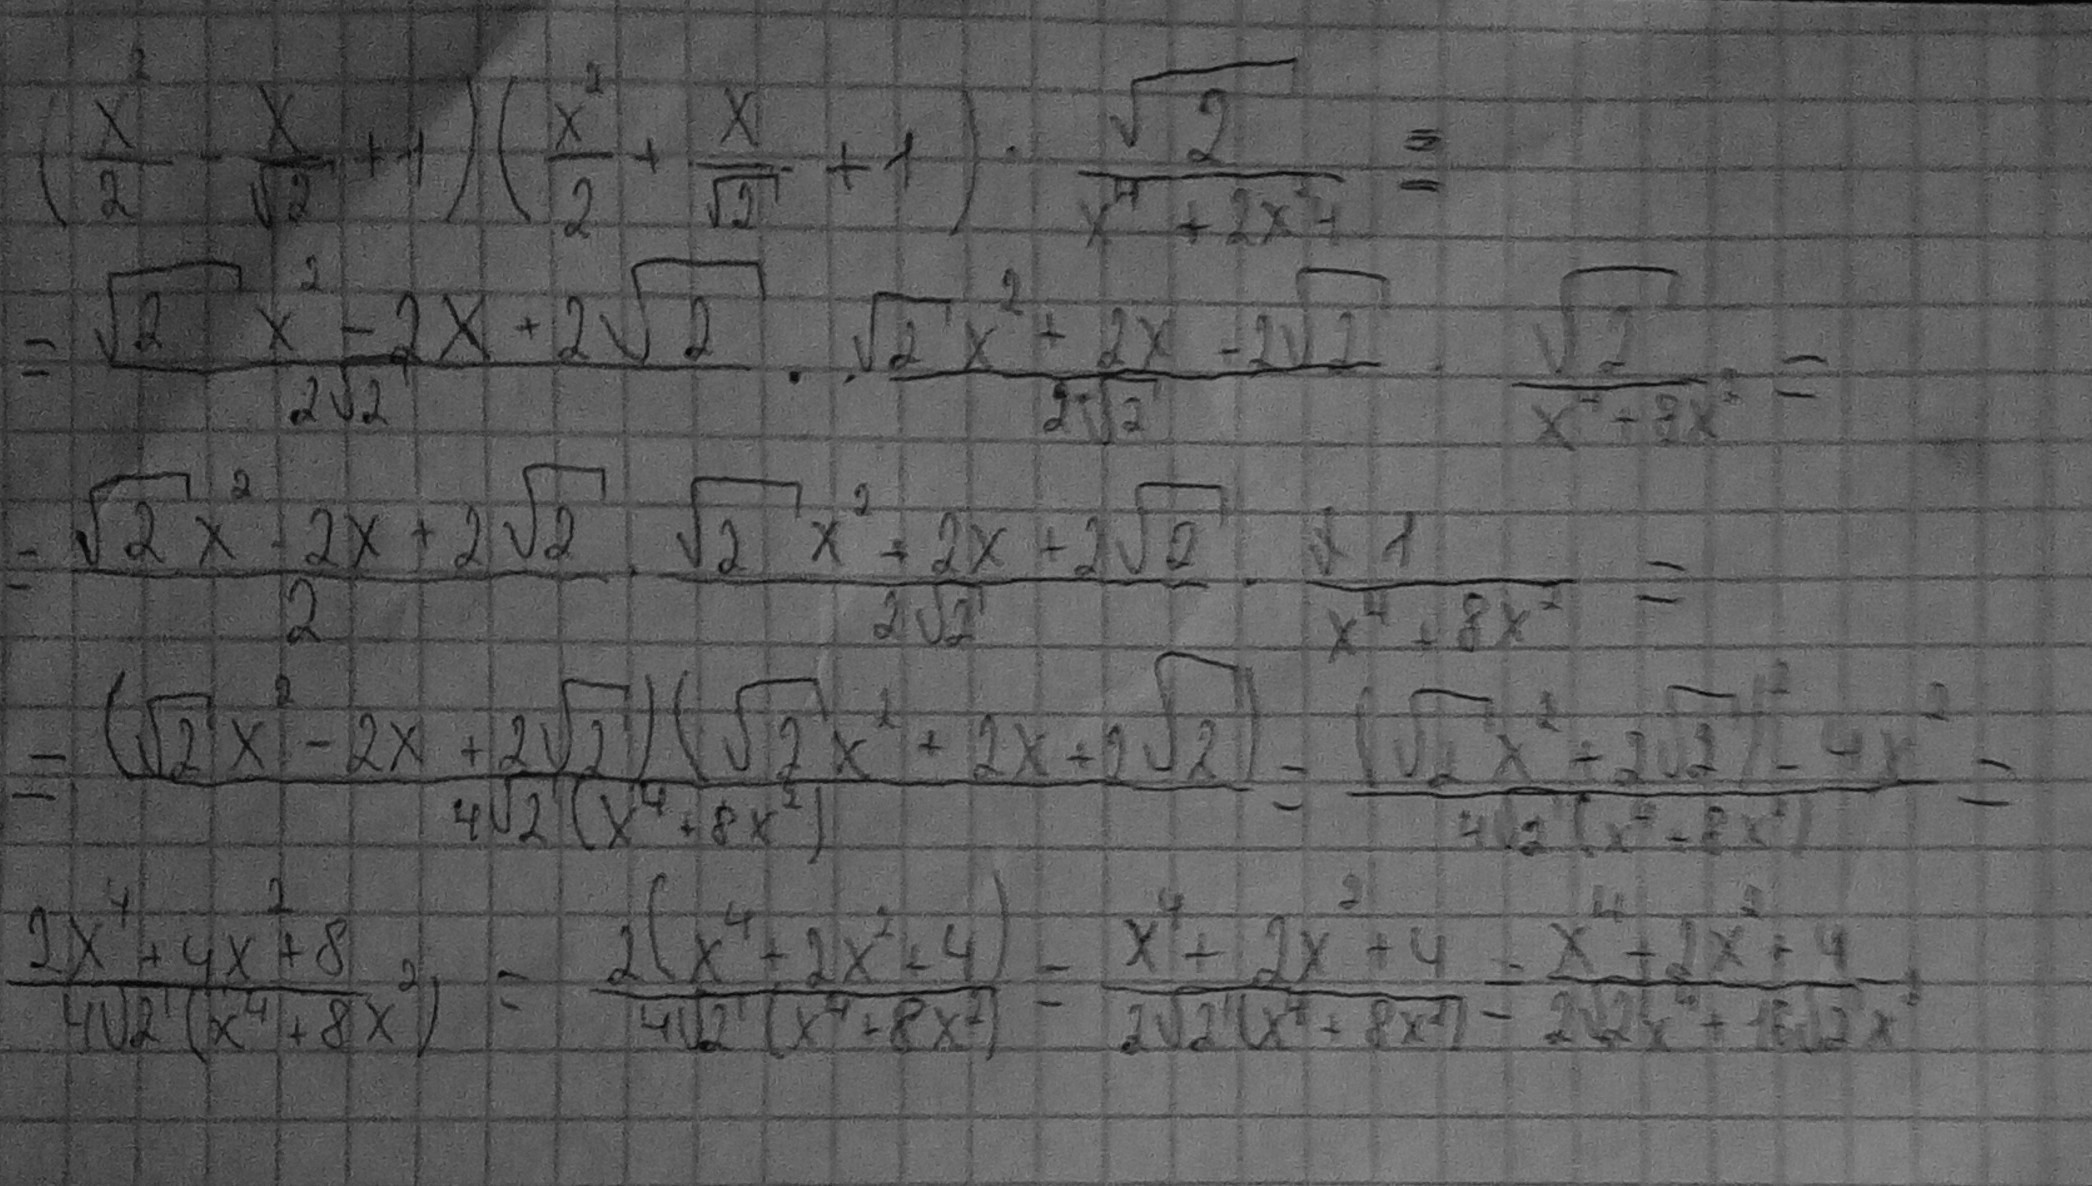 (x²/2 - x/√2 + 1)(x²/2 + x/√2 + 1) · √2/(x⁴ + 2x²4) =
= (√2x² - 2x + 2√2)/(2√2) · · (√2x² + 2x - 2√2)/(2√2) · √2/(x⁴ + 8x²) =
= (√2x² - 2x + 2√2)/2 · (√2x² + 2x + 2√2)/(2√2) · 1/(x⁴ + 8x²) =
= ((√2x² - 2x + 2√2)(√2x² + 2x + 2√2))/(4√2(x⁴ + 8x²)) = ((√2x² + 2√2)² - 4x²)/(4√2(x⁴ + 8x²)) =
(2x⁴ + 4x² + 8)/(4√2(x⁴ + 8x²)) = 2(x⁴ + 2x² + 4)/(4√2(x⁴ + 8x²)) = (x⁴ + 2x² + 4)/(2√2(x⁴ + 8x²)) = (x⁴ + 2x² + 4)/(2√2x⁴ + 16√2x²)